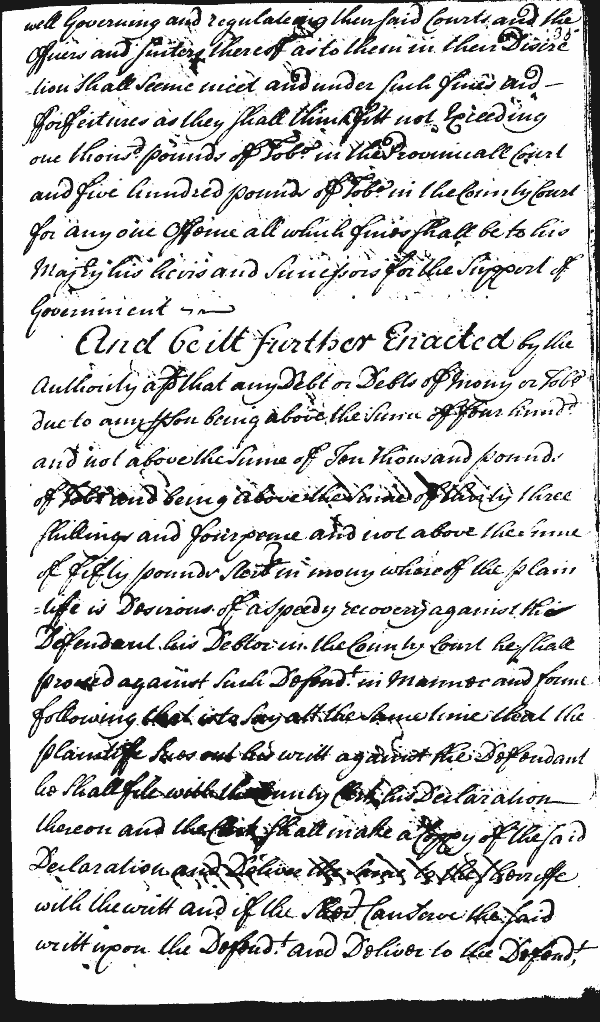 35
well Governing and regulateing their said Courts and the
Officers and suiters thereof as to them in their Discre
tion Shall Seeme meet and under such fines and
fforfeitures as they shall think fitt not Exceeding
one thous:d pounds of Tobo in the Provinciall Court
and five hundred pounds of Tobo in the County Court
for any one Offence all which fines shall be to his
Majty his heirs and Successors for the Support of
Government
And be itt further Enacted by the
Authority afd that any Debt or Debts of Mony or Tobo
due to any pson being above the sume of four hund:d
and not above the sume of Ten thousand pounds
of Tobo and being above the sume of thirty three
shillings and four pence and not above the sume
of fifty pounds sterl in mony whereof the plain
=tiffe is Desirous of a speedy recovery against the
Defendant his Debtor in the County Court he shall
proceed against such Defend:t in Manner and forme
following that is to say att the same time that the
plaintiffe sues out his writt against the Defendant
he shall file with the County Clerk his Declaration
thereon and the Clerk shall make a Coppy of the said
Declaration and Deliver the same to the sherriffe
with the writt and if the Sher: Can serve the said
writt upon the Defend:t and Deliver to the Defend:t